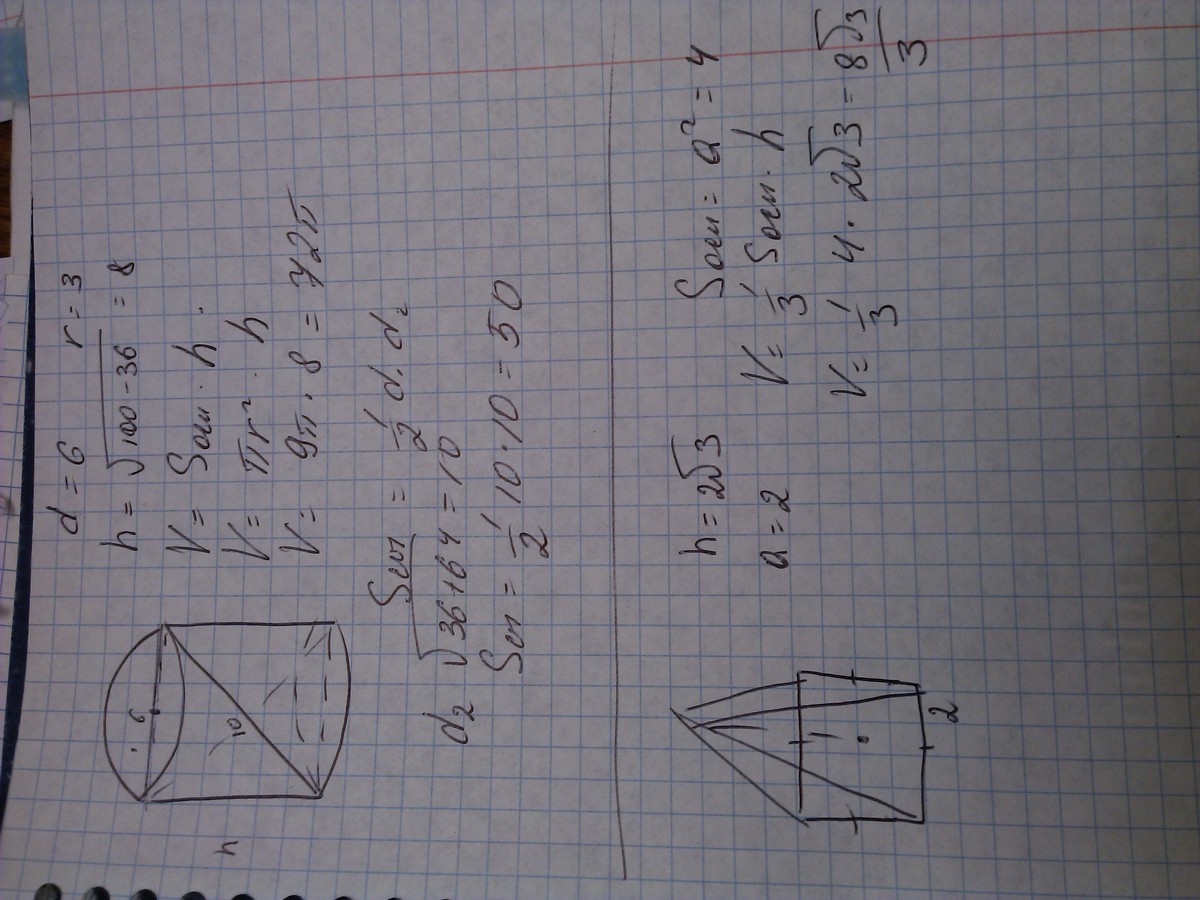 d = 6 r = 3
h = √100-36 = 8
V = Sосн · h.
V = πr² · h
V = 9π · 8 = 72π
6
10
h
Sсеч = 1/2 d₁ d₂
d₂ √36+64 = 10
Sсеч = 1/2 10·10 = 50
h = 2√3 Sосн = a² = 4
a = 2 V = 1/3 Sосн · h
V = 1/3 4 · 2√3 = 8√3/3
2